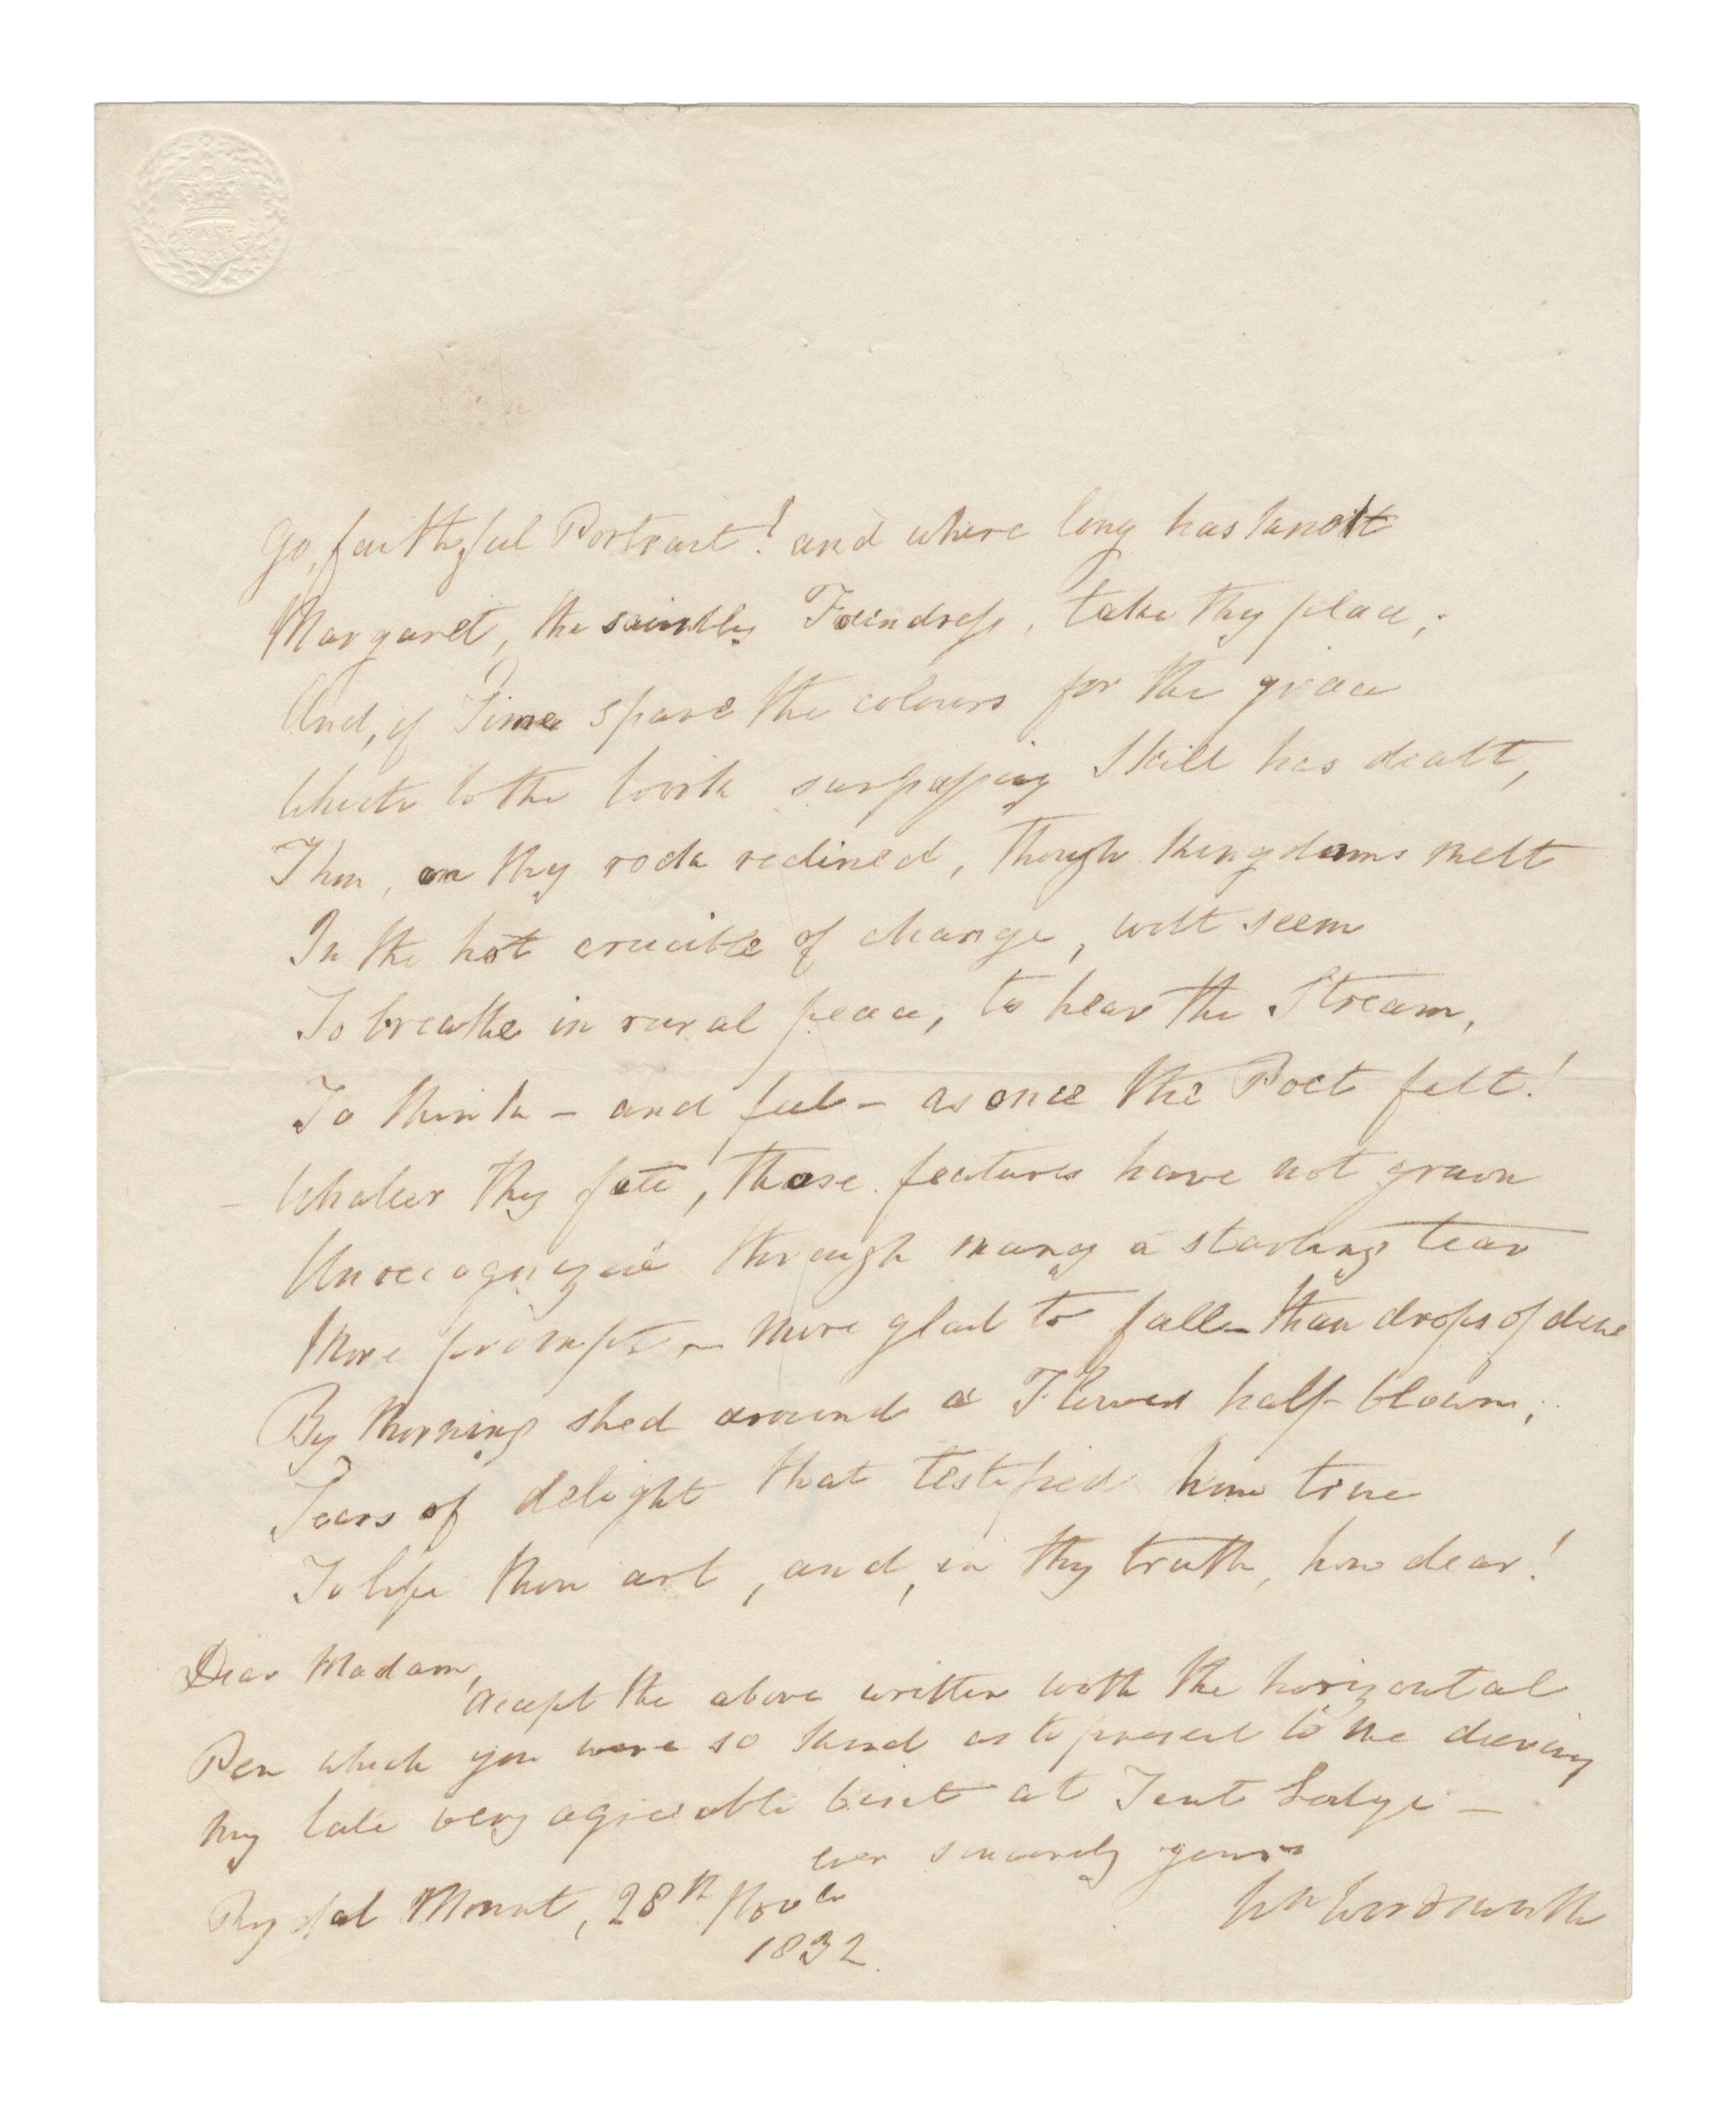 Go, faithful Portrait! and where long has knelt
Margaret, the saintly Foundress, take thy place;
And, if Time spare the colours for the grace
Which to the work surpassing Skill has dealt,
Thou, on thy rock reclined, though Kingdoms melt
In the hot crucible of change, wilt seem
To breathe in rural peace, to hear the Stream,
To think – and feel – as once the Poet felt!
– Whate'er thy fate, those features have not grown
Unrecognized through many a starting tear
More prompt – more glad to fall – than drops of dew
By Morning shed around a Flower half-blown;
Tears of delight that testified how true
To life thou art, and, in thy truth, how dear!
Dear Madam,
Accept the above written with the horizontal
Pen which you were so kind as to present to me during
my late very agreeable visit at Tent Lodge –
ever sincerely yours
Wm Wordsworth
Rydal Mount, 28th Novbr
1832.